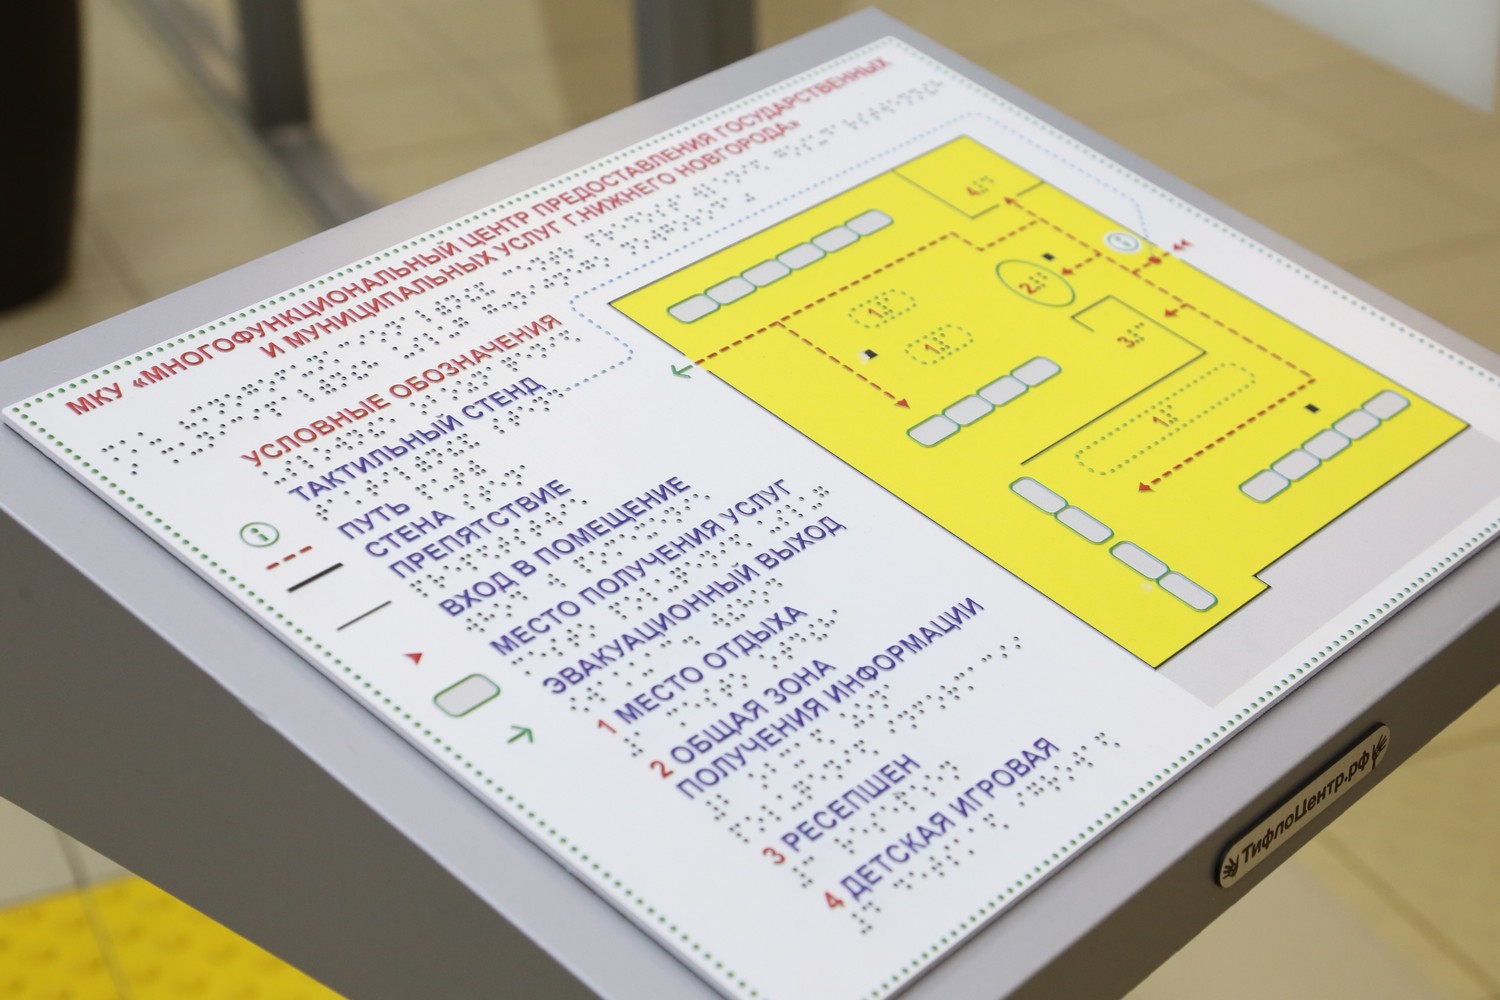 МКУ «МНОГОФУНКЦИОНАЛЬНЫЙ ЦЕНТР ПРЕДОСТАВЛЕНИЯ ГОСУДАРСТВЕННЫХ
И МУНИЦИПАЛЬНЫХ УСЛУГ Г.НИЖНЕГО НОВГОРОДА»
УСЛОВНЫЕ ОБОЗНАЧЕНИЯ
ТАКТИЛЬНЫЙ СТЕНД
ПУТЬ
СТЕНА
ПРЕПЯТСТВИЕ
ВХОД В ПОМЕЩЕНИЕ
МЕСТО ПОЛУЧЕНИЯ УСЛУГ
ЭВАКУАЦИОННЫЙ ВЫХОД
1 МЕСТО ОТДЫХА
2 ОБЩАЯ ЗОНА
ПОЛУЧЕНИЯ ИНФОРМАЦИИ
3 РЕСЕПШЕН
4 ДЕТСКАЯ ИГРОВАЯ
4
2
1
1
3
1
ТифлоЦентр.рф